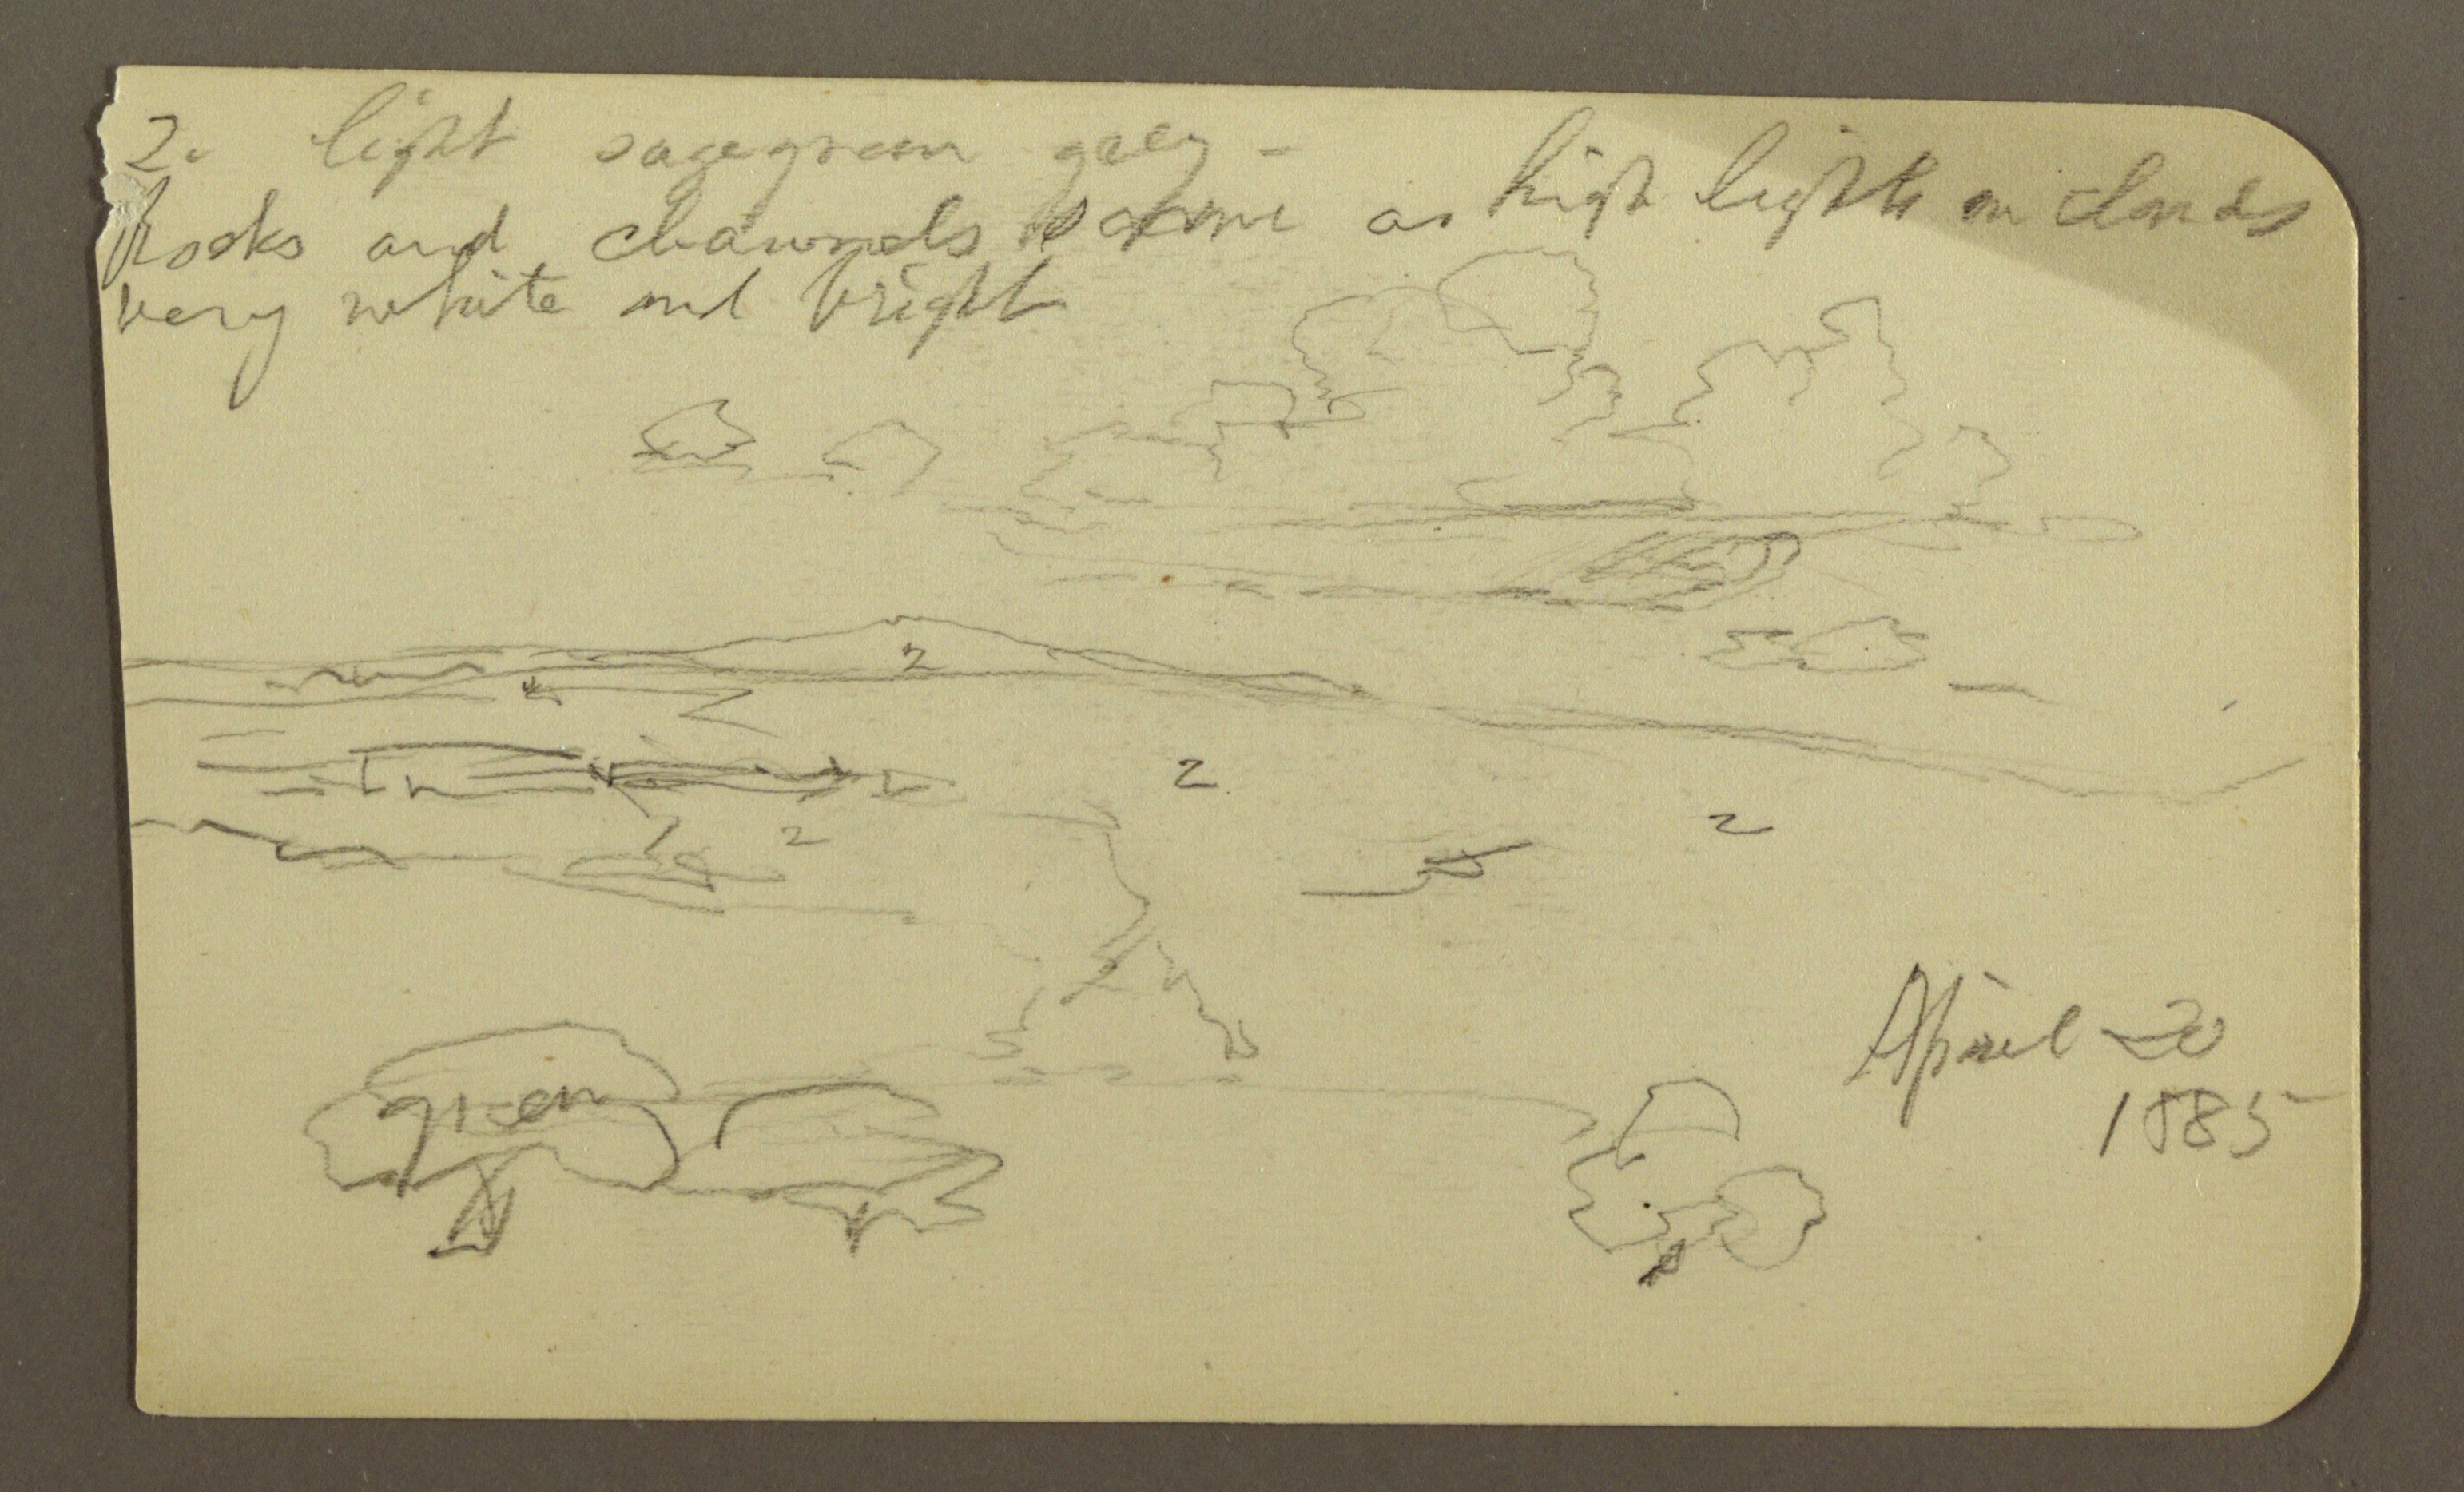 2. light sage green grey -
Rocks and channels same as high lights on clouds
very white and bright
2
2
2
2
green
April 20
1885